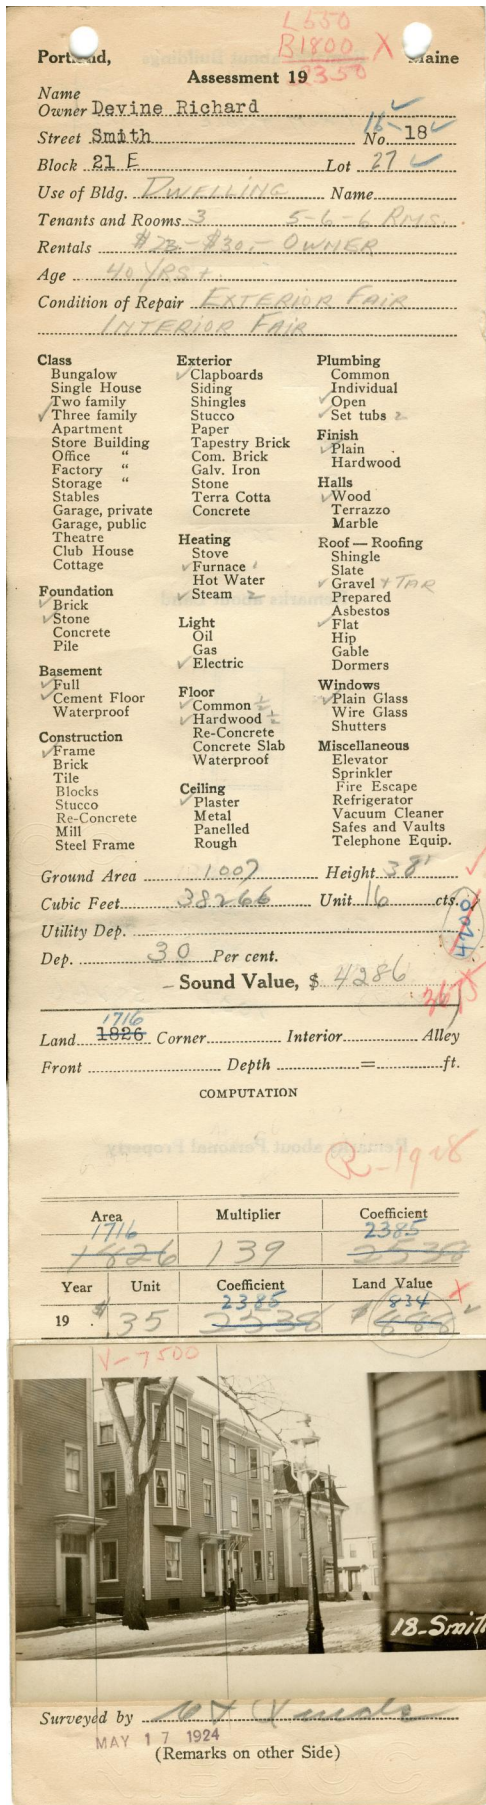 L 550
B 1800 X
2350
Portland, Maine
Assessment 19
Name
Owner Devine Richard
Street Smith No. 16-18
Block 21 E Lot 27
Use of Bldg. DWELLING Name
Tenants and Rooms 3 5-6-6 RMS.
Rentals $23-$30.- OWNER
Age 40 YRS +
Condition of Repair EXTERIOR FAIR
INTERIOR FAIR
Class
Bungalow
Single House
Two family
✓ Three family
Apartment
Store Building
Office "
Factory "
Storage "
Stables
Garage, private
Garage, public
Theatre
Club House
Cottage
Foundation
✓ Brick
✓ Stone
Concrete
Pile
Basement
✓ Full
✓ Cement Floor
Waterproof
Construction
✓ Frame
Brick
Tile
Blocks
Stucco
Re-Concrete
Mill
Steel Frame
Exterior
✓ Clapboards
Siding
Shingles
Stucco
Paper
Tapestry Brick
Com. Brick
Galv. Iron
Stone
Terra Cotta
Concrete
Heating
Stove
✓ Furnace 1
Hot Water
✓ Steam 2
Light
Oil
Gas
✓ Electric
Floor
✓ Common ½
✓ Hardwood ½
Re-Concrete
Concrete Slab
Waterproof
Ceiling
✓ Plaster
Metal
Panelled
Rough
Plumbing
Common
✓ Individual
✓ Open
✓ Set tubs 2
Finish
✓ Plain
Hardwood
Halls
✓ Wood
Terrazzo
Marble
Roof — Roofing
Shingle
Slate
✓ Gravel + TAR
Prepared
Asbestos
✓ Flat
Hip
Gable
Dormers
Windows
✓ Plain Glass
Wire Glass
Shutters
Miscellaneous
Elevator
Sprinkler
Fire Escape
Refrigerator
Vacuum Cleaner
Safes and Vaults
Telephone Equip.
Ground Area 1007 Height 38'
Cubic Feet 38266 Unit 16 cts.
4200
Utility Dep.
Dep. 30 Per cent.
Sound Value, $ 4286
1716
Land 1826 Corner Interior Alley
Front Depth = ft.
COMPUTATION
R-1928
Area Multiplier Coefficient
1716 2385
1826 139 2538
Year Unit Coefficient Land Value
2385 834 X
19 . $ 35 2538 $ 888
V-7500
18-Smith
Surveyed by
MAY 17 1924
(Remarks on other Side)